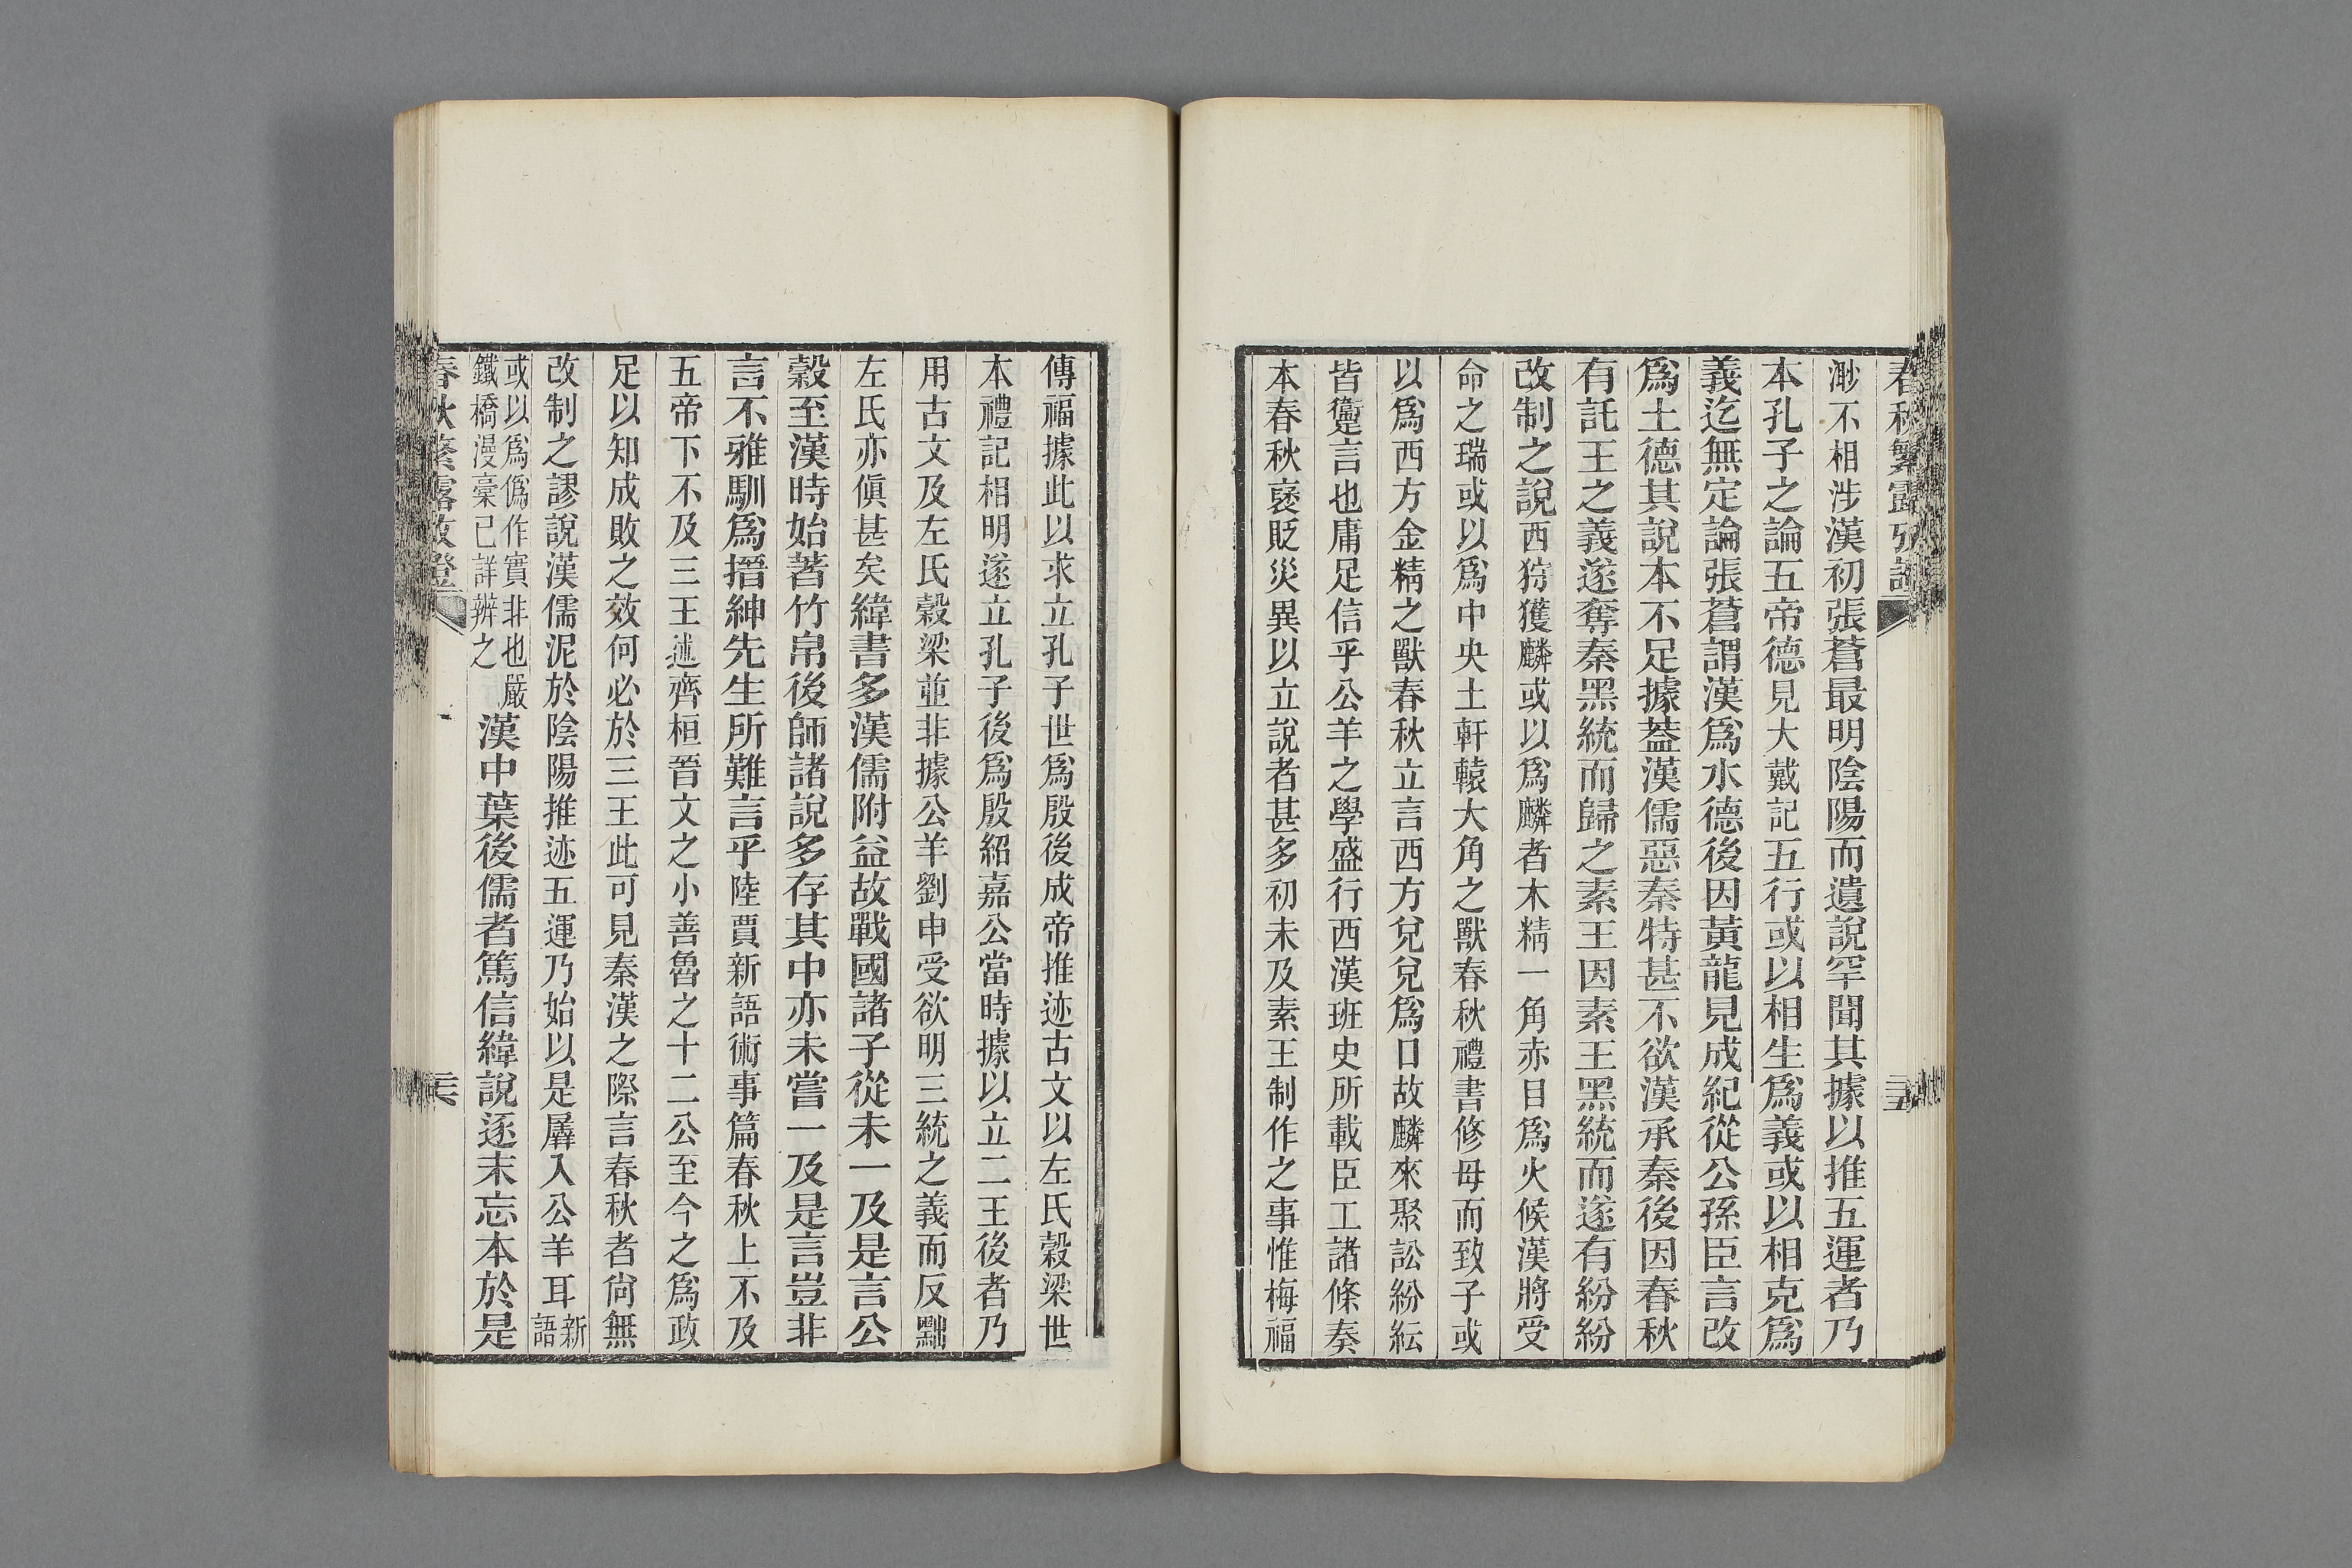 春秋繁露攷證
二十五
渺不相涉漢初張蒼最明陰陽而遺說罕聞其據以推五運者乃
本孔子之論五帝德見大戴記五行或以相生爲義或以相克爲
義迄無定論張蒼謂漢爲水德後因黃龍見成紀從公孫臣言改
爲土德其說本不足據蓋漢儒惡秦特甚不欲漢承秦後因春秋
有託王之義遂奪秦黑統而歸之素王因素王黑統而遂有紛紛
改制之說西狩獲麟或以爲麟者木精一角赤目爲火候漢將受
命之瑞或以爲中央土軒轅大角之獸春秋禮書修母而致子或
以爲西方金精之獸春秋立言西方兌兌爲口故麟來聚訟紛紜
皆躗言也庸足信乎公羊之學盛行西漢班史所載臣工諸條奏
本春秋襃貶災異以立說者甚多初未及素王制作之事惟梅福
傳福據此以求立孔子世爲殷後成帝推迹古文以左氏穀梁世
本禮記相明遂立孔子後爲殷紹嘉公當時據以立二王後者乃
用古文及左氏穀梁並非據公羊劉申受欲明三統之義而反黜
左氏亦傎甚矣緯書多漢儒附益故戰國諸子從未一及是言公
穀至漢時始著竹帛後師諸說多存其中亦未嘗一及是言豈非
言不雅馴爲搢紳先生所難言乎陸賈新語術事篇春秋上不及
五帝下不及三王述齊桓晉文之小善魯之十二公至今之爲政
足以知成敗之效何必於三王此可見秦漢之際言春秋者尙無
改制之謬說漢儒泥於陰陽推迹五運乃始以是羼入公羊耳新
語
或以爲僞作實非也嚴
鐵橋漫稾已詳辨之
漢中葉後儒者篤信緯說逐末忘本於是
春秋繁露攷證
二十六